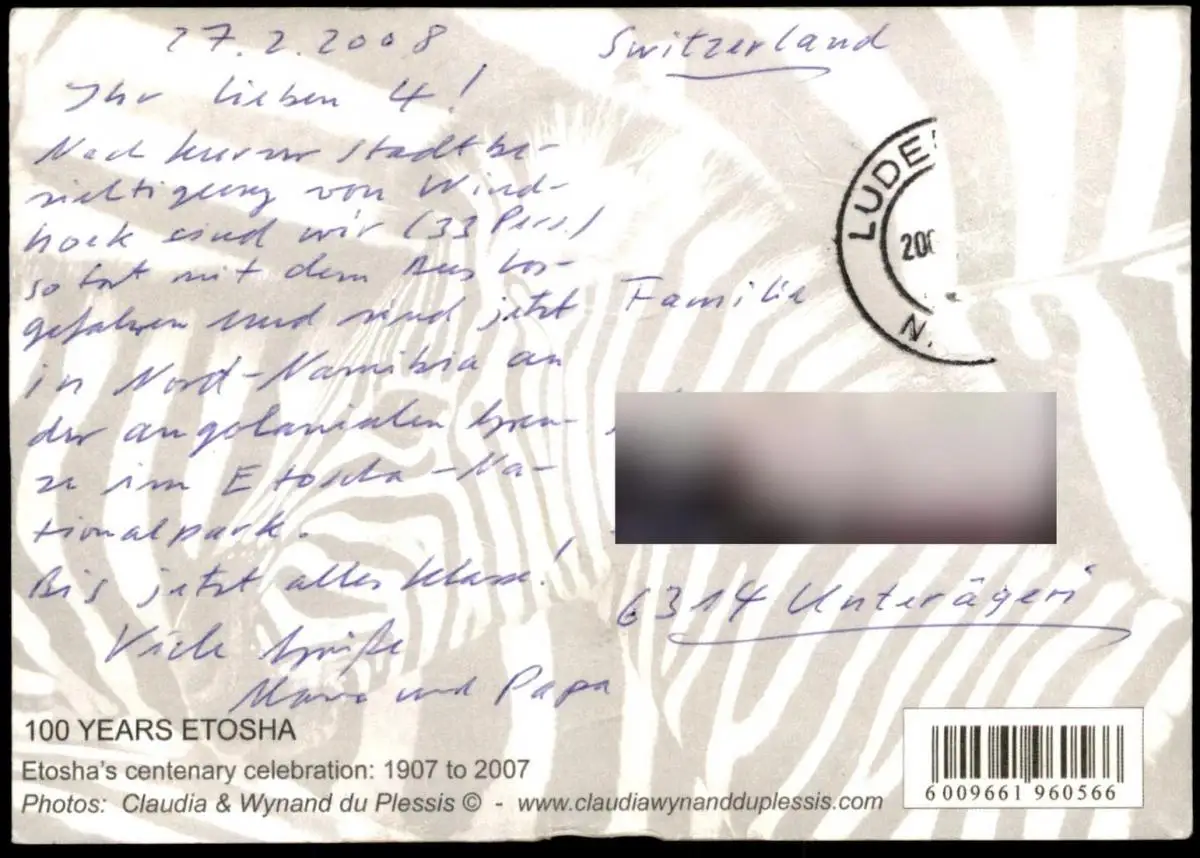 27.2.2008
Ihr lieben 4!
Nach kurzer Stadtbe-
sichtigung von Wind-
hoek sind wir (33 Pers.)
sofort mit dem Bus los-
gefahren und sind jetzt
in Nord-Namibia an
der angolanischen Gren-
ze im Etoscha-Na-
tionalpark.
Bis jetzt alles klasse!
Viele Grüße
Mama und Papa
Switzerland
LUDE
200
N.
Familie
6314 Unterägeri
100 YEARS ETOSHA
Etosha's centenary celebration: 1907 to 2007
Photos: Claudia & Wynand du Plessis © - www.claudiawynandduplessis.com
6009661 960566